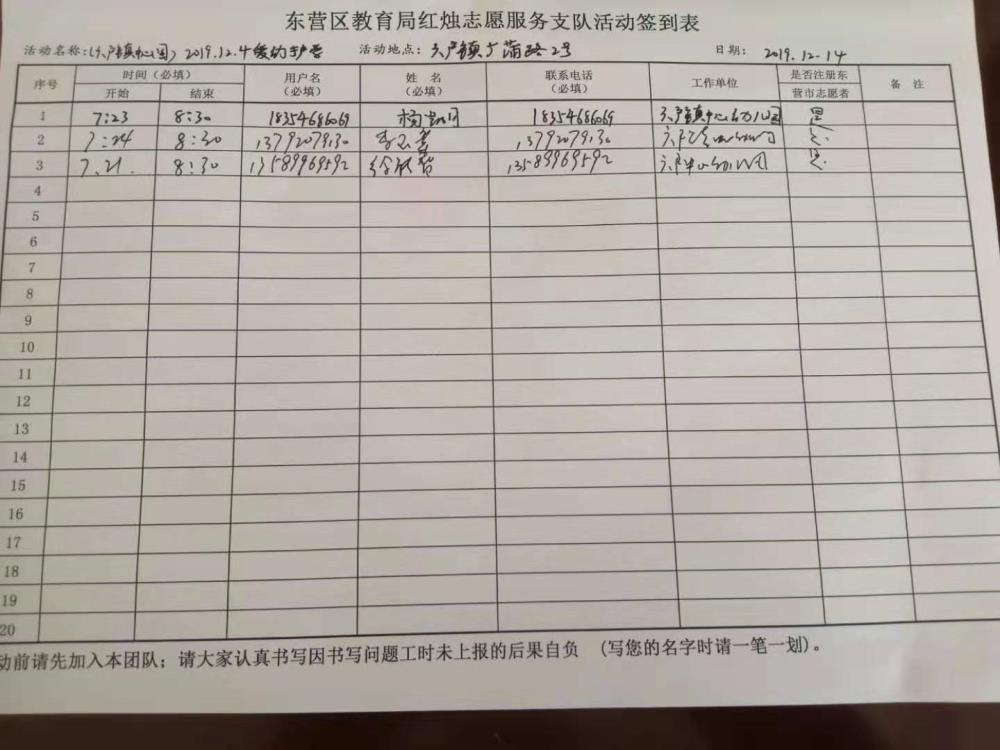 东营区教育局红烛志愿服务支队活动签到表
活动名称:(六户镇中心园) 2019.12.4爱幼护学 活动地点: 六户镇广蒲路2号 日期: 2019.12-14
序号 时间(必填) 用户名(必填) 姓名(必填) 联系电话(必填) 工作单位 是否注册东营市志愿者 备注
开始 结束
1 7:23 8:30 18354686069 杨 18354686069 六户镇中心幼儿园 是
2 7:24 8:30 13792079130 李 13792079130 六户 是
3 7.21. 8:30 13589969592 徐 13589969592 六户中心幼儿园 是
4
5
6
7
8
9
10
11
12
13
14
15
16
17
18
19
20
动前请先加入本团队;请大家认真书写因书写问题工时未上报的后果自负 (写您的名字时请一笔一划)。